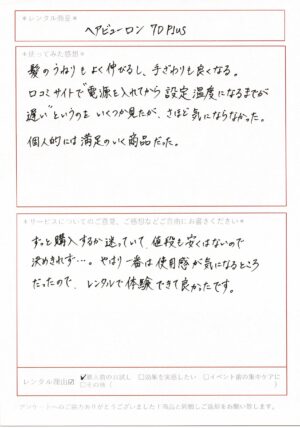 ＊レンタル商品＊
ヘアビューロン 7D Plus
＊使ってみた感想＊
髪のうねりもよく伸びるし、手ざわりも良くなる。
口コミサイトで"電源を入れてから設定温度になるまでが
遅い"というのをいくつか見たが、さほど気にならなかった。
個人的には満足のいく商品だった。
＊サービスについてのご意見、ご感想などご自由にお書きください＊
ずっと購入するか迷っていて、値段も安くはないので
決めきれず…。やはり一番は使用感が気になるところ
だったので、レンタルで体験できて良かったです。
レンタル理由 ✓購入前のお試し □効果を実感したい □イベント前の集中ケアに
□その他（ ）
アンケートへのご協力ありがとうございました！商品と同梱しご返却をお願い致します。